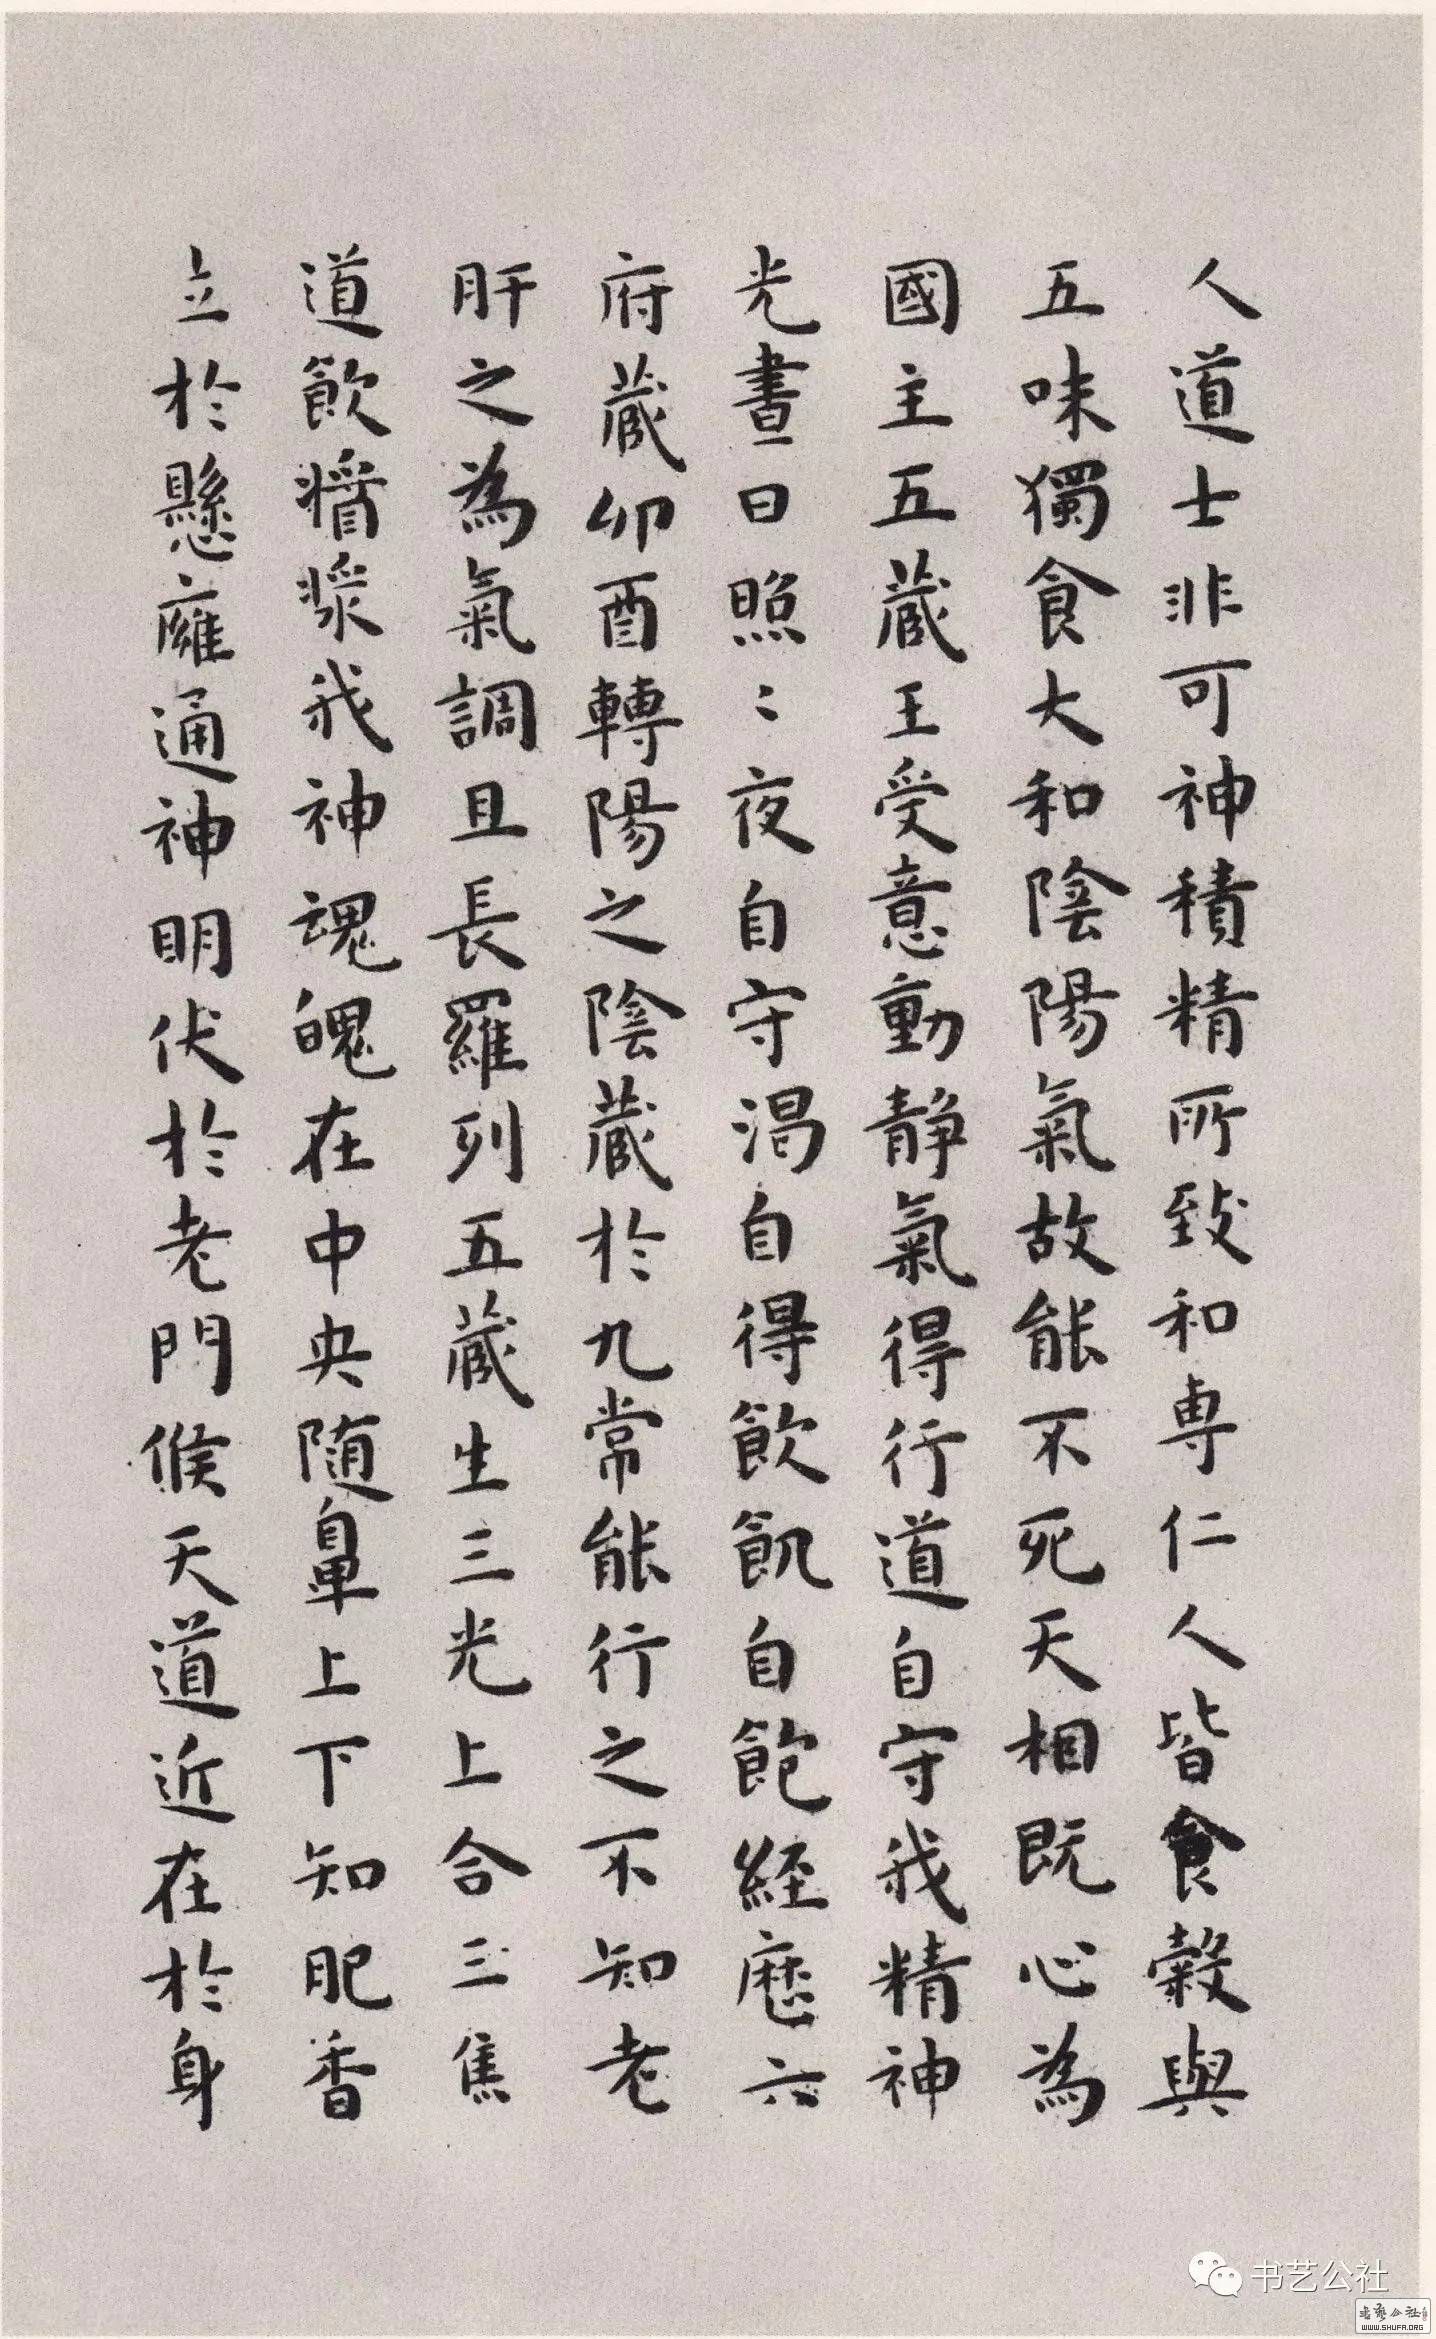 人道士非可神積精所致和専仁人皆食穀與
五味獨食大和陰陽氣故能不死天相既心為
國主五藏王受意動静氣得行道自守我精神
光晝日照〻夜自守渇自得飲飢自飽経歴六
府藏卯酉轉陽之陰藏於九常能行之不知老
肝之為氣調且長羅列五藏生三光上合三焦
道飲漿我神魂魄在中央随鼻上下知肥香
立於懸癰通神明伏於老門候天道近在於身
书艺公社
WWW.SHUFA.ORG